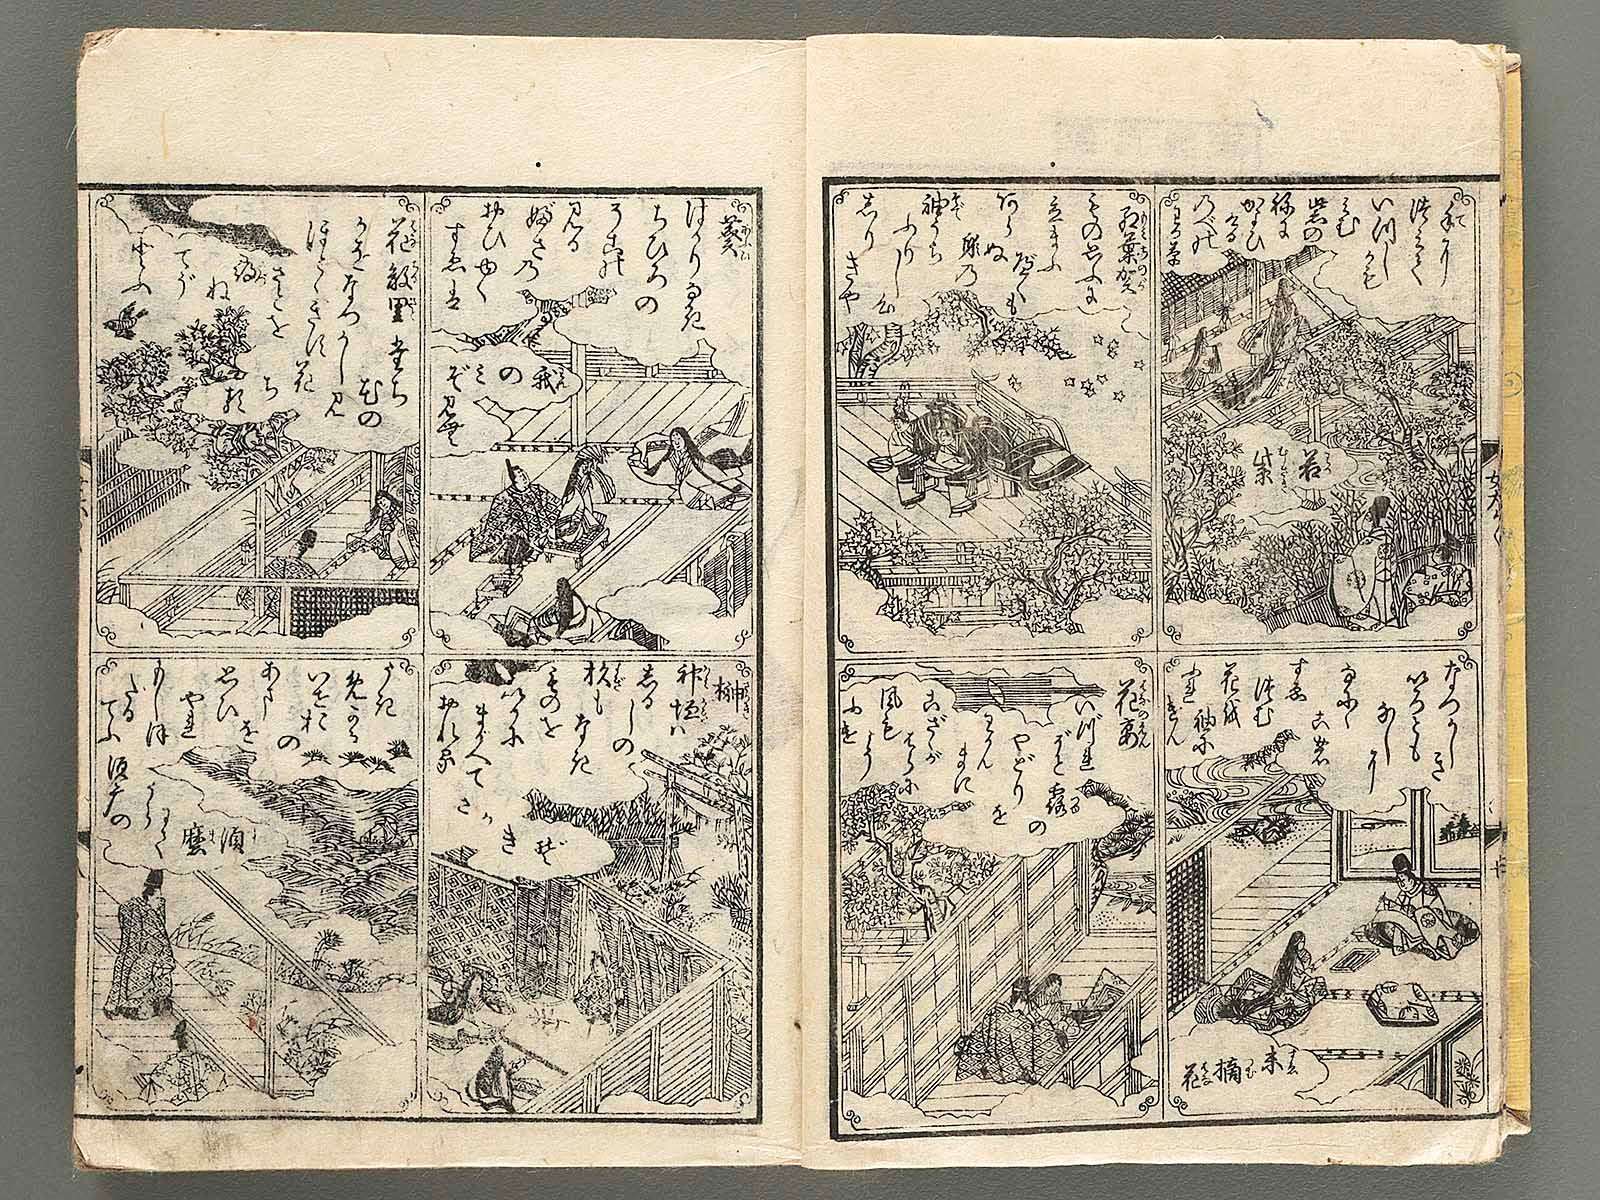 若紫
手に
つみて
いつし
かも
みむ
紫の
ねに
かよひ
ける
のべの
わか草
末摘花
なつかしき
いろとも
なしに
なにに
この
すゑ
つむ
花を
袖に
ふれ
けん
紅葉賀
ものおもふに
立まふ
べくも
あらぬ
身の
袖うち
ふりし
心
しりきや
花宴
いづれ
ぞと露の
やどりを
わかん
まに
こざさが
はらに
風も
こそ
ふけ
葵
はかりなき
ちひろの
そこの
みる
ぶさの
おひゆく
すゑは
我の
みぞ
見む
榊
神垣は
しるしの
杉も
なき
ものを
いかに
まがへて
おれる
さかきぞ
花散里
たち
ばなの
かをなつかしみ
ほととぎす花
ちる
さとを
たづね
てぞ
とふ
須磨
うき
めかる
いせお
の
あまを
思ひ
やれ
もしほ
たる
てふ
須广の
うらにて